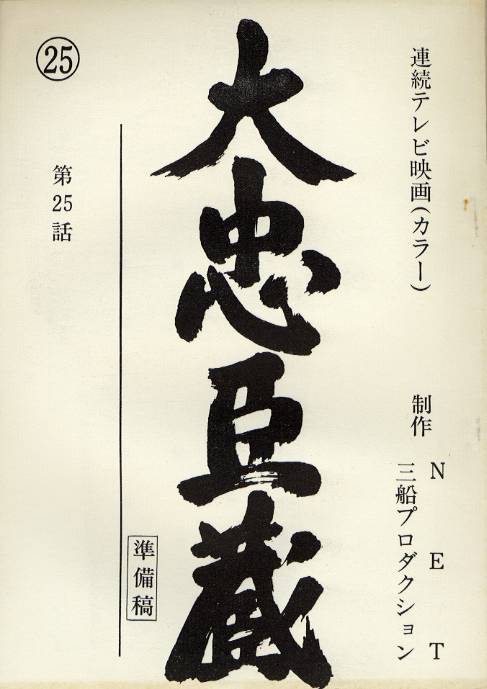 連続テレビ映画(カラー)
制作 NET
三船プロダクション
大忠臣蔵
準備稿
第25話
㉕